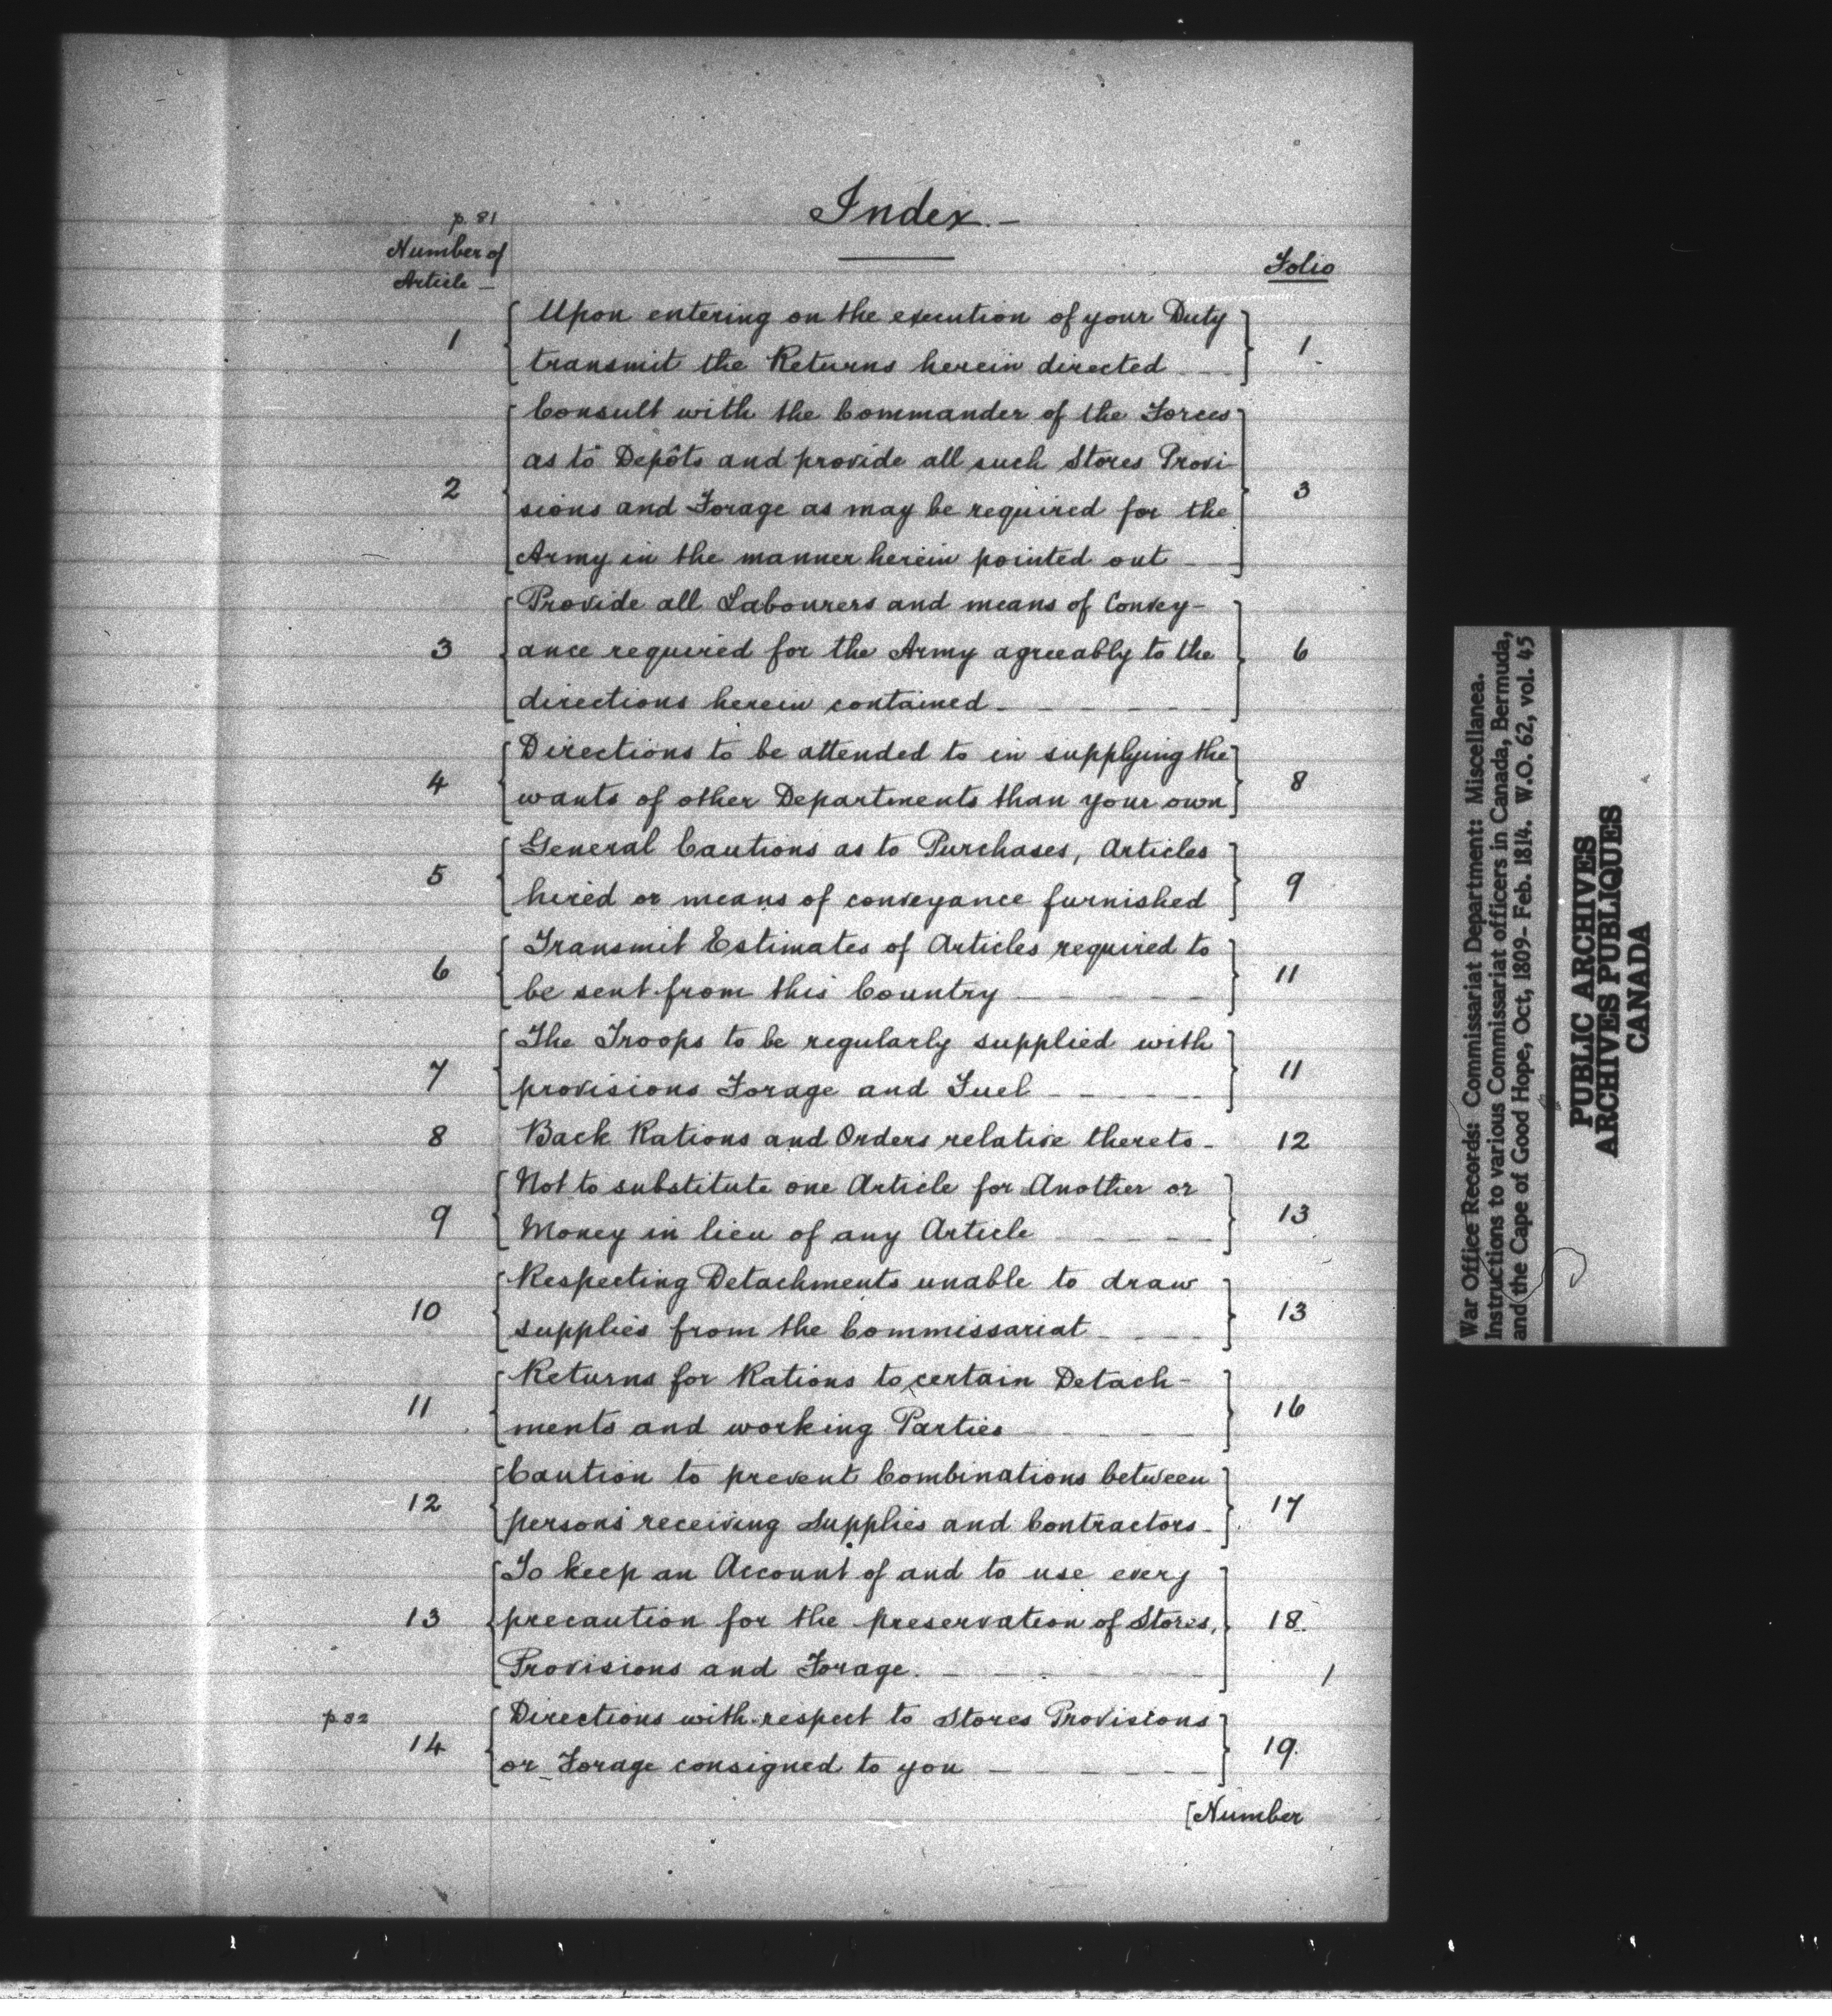 Index.—
p. 81
Number of
Article —
Folio
Upon entering on the execution of your Duty
1 transmit the Returns herein directed 1.
Consult with the Commander of the Forces
as to Depôts and provide all such Stores Provi-
2 sions and Forage as may be required for the 3
Army in the manner herein pointed out
Provide all Labourers and means of Convey-
3 ance required for the Army agreeably to the 6
directions herein contained
Directions to be attended to in supplying the
4 wants of other Departments than your own 8
General Cautions as to Purchases, Articles
5 hired or means of conveyance furnished 9
Transmit Estimates of Articles required to
6 be sent from this Country 11
The Troops to be regularly supplied with
7 provisions Forage and Fuel 11
8 Back Rations and Orders relative thereto 12
Not to substitute one Article for Another or
9 Money in lieu of any Article 13
Respecting Detachments unable to draw
10 supplies from the Commissariat 13
Returns for Rations to certain Detach-
11 ments and working Parties 16
Caution to prevent Combinations between
12 persons receiving Supplies and Contractors 17
To keep an Account of and to use every
13 precaution for the preservation of Stores, 18.
Provisions and Forage.
p 82 Directions with respect to Stores Provisions
14 or Forage consigned to you 19.
[Number
War Office Records: Commissariat Department: Miscellanea.
Instructions to various Commissariat officers in Canada, Bermuda,
and the Cape of Good Hope, Oct, 1809- Feb. 1814. W.O. 62, vol. 45
PUBLIC ARCHIVES
ARCHIVES PUBLIQUES
CANADA